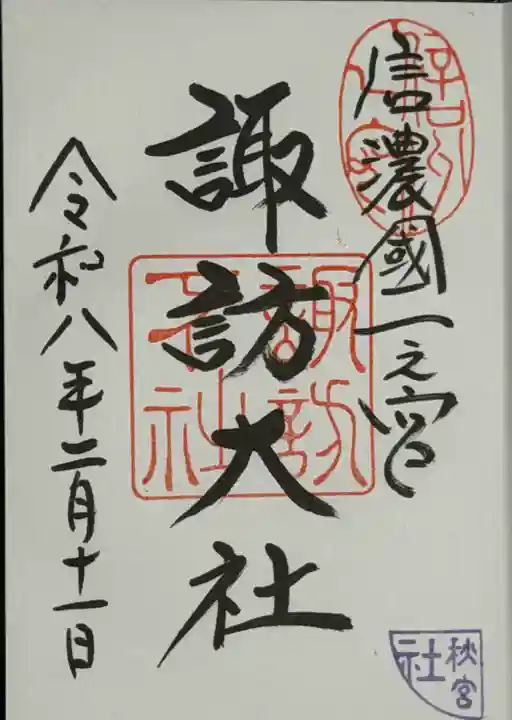 信濃國一之宮
諏訪大社
令和八年二月十一日
諏訪
大社
秋宮
社